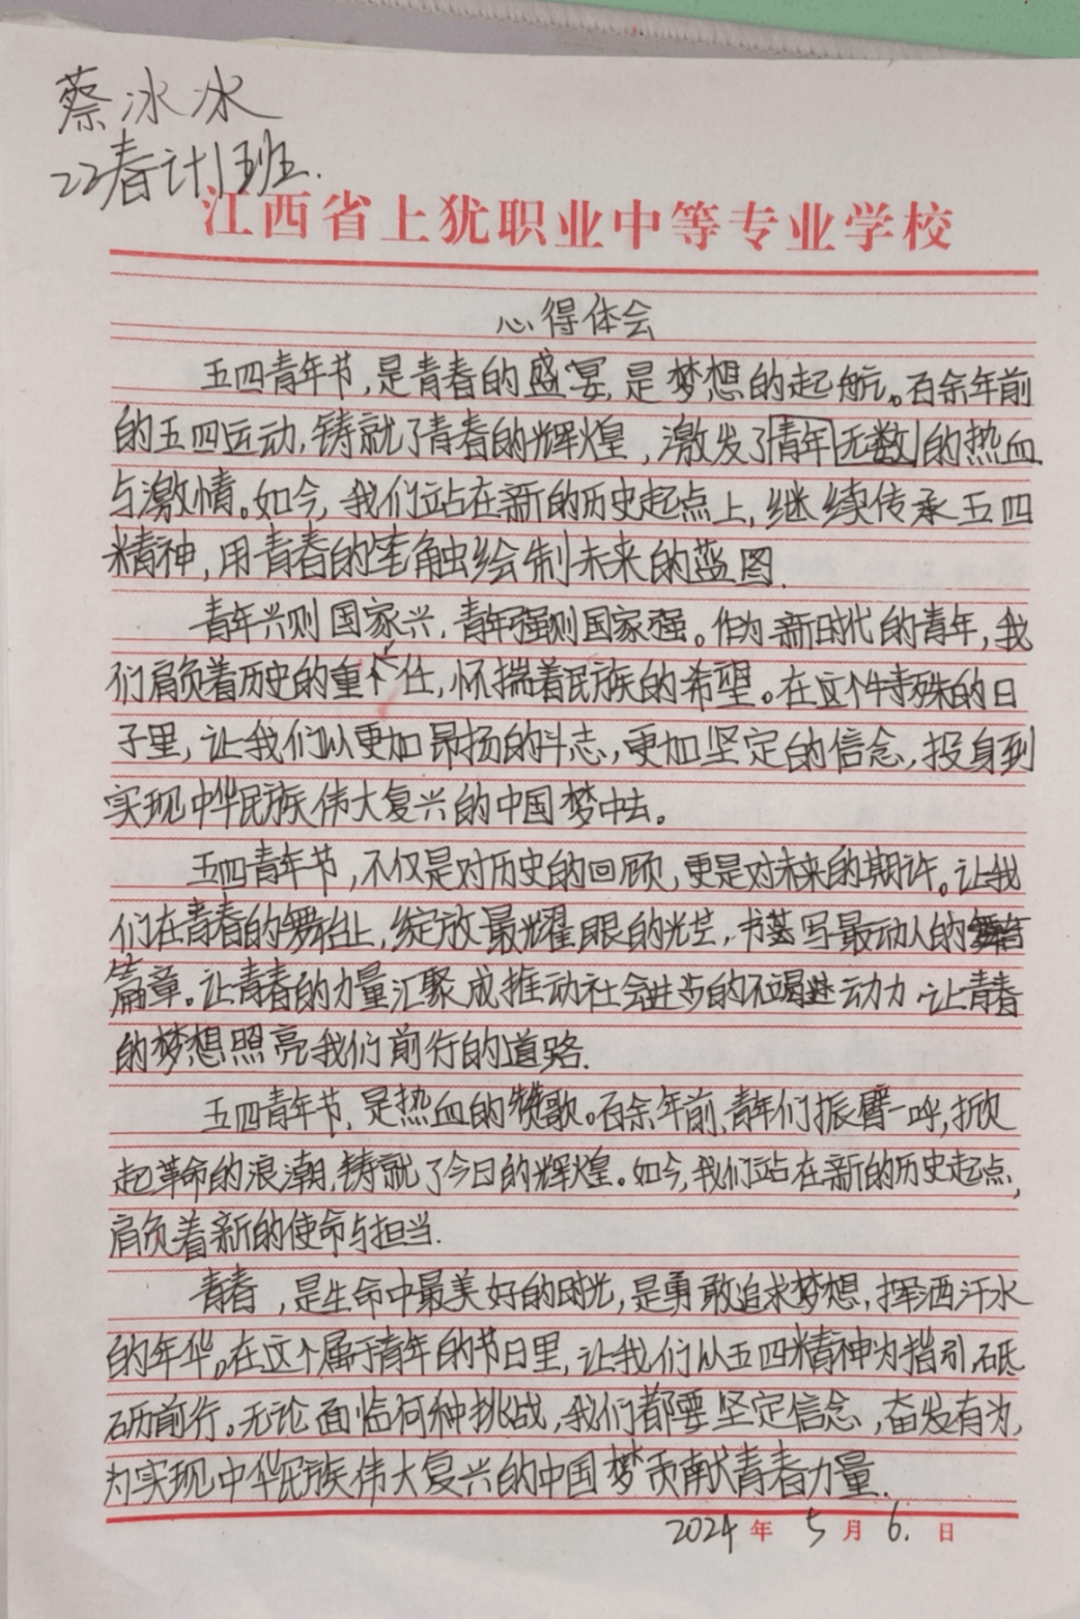 蔡冰冰
22春计1班.
江西省上犹职业中等专业学校
心得体会
五四青年节,是青春的盛宴,是梦想的起航。百余年前
的五四运动,铸就了青春的辉煌,激发了青年无数的热血
与激情。如今,我们站在新的历史起点上,继续传承五四
精神,用青春的笔触绘制未来的蓝图.
青年兴则国家兴,青年强则国家强。作为新时代的青年,我
们肩负着历史的重任,怀揣着民族的希望。在这个特殊的日
子里,让我们以更加昂扬的斗志,更加坚定的信念,投身到
实现中华民族伟大复兴的中国梦中去。
五四青年节,不仅是对历史的回顾,更是对未来的期许。让我
们在青春的舞台上,绽放最耀眼的光芒,书写最动人的
篇章。让青春的力量汇聚成推动社会进步的不竭动力,让青春
的梦想照亮我们前行的道路.
五四青年节,是热血的赞歌。百余年前,青年们振臂一呼,掀
起革命的浪潮,铸就了今日的辉煌。如今,我们站在新的历史起点,
肩负着新的使命与担当.
青春,是生命中最美好的时光,是勇敢追求梦想,挥洒汗水
的年华。在这个属于青年的节日里,让我们以五四精神为指引,砥
砺前行。无论面临何种挑战,我们都要坚定信念,奋发有为,
为实现中华民族伟大复兴的中国梦贡献青春力量.
2024年5月6.日